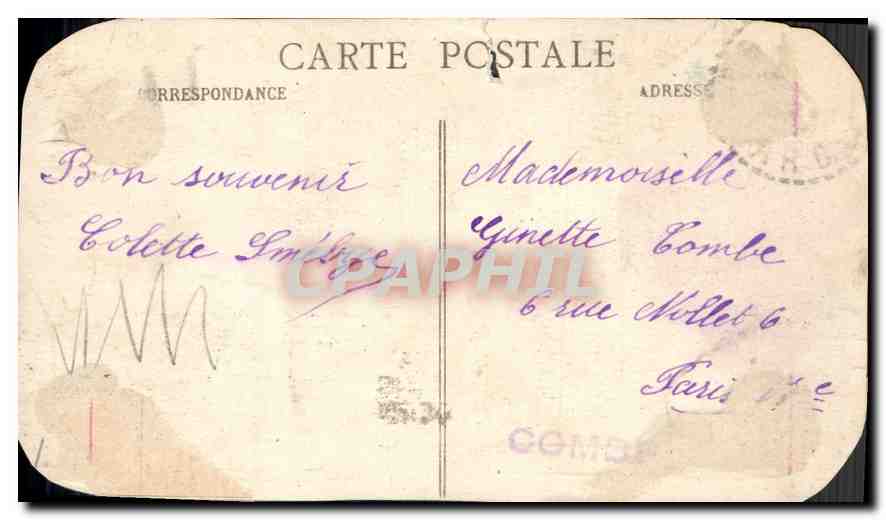 CARTE POSTALE
CORRESPONDANCE
ADRESSE
Bon souvenir
Colette
Mademoiselle
Ginette Combe
6 rue Nollet 6
Paris
CPAPHIL
COMBE